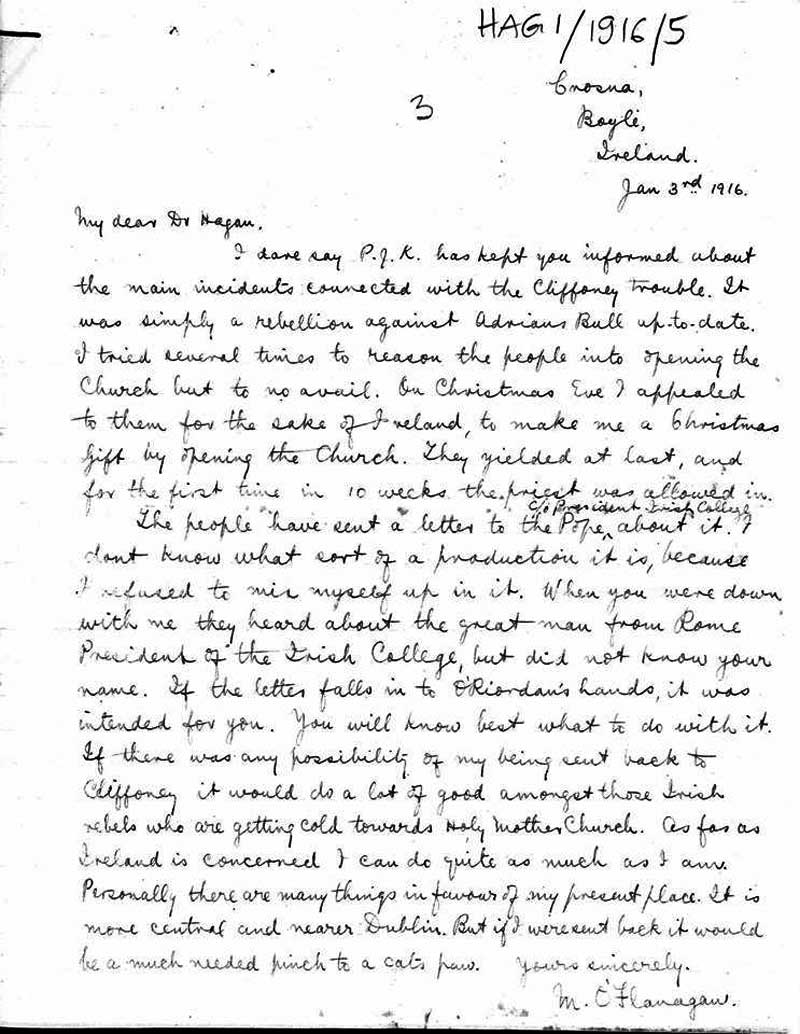 HAG1/1916/5
3
Crosna,
Boyle,
Ireland.
Jan 3rd 1916.
My dear Dr Hagan,
I dare say P.J.K. has kept you informed about
the main incidents connected with the Cliffoney trouble. It
was simply a rebellion against Adrians Bull up-to-date.
I tried several times to reason the people into opening the
Church but to no avail. On Christmas Eve I appealed
to them for the sake of Ireland, to make me a Christmas
Gift by opening the Church. They yielded at last, and
for the first time in 10 weeks the priest was allowed in.
c/o President Irish College
The people have sent a letter to the Pope, about it. I
dont know what sort of a production it is, because
I refused to mix myself up in it. When you were down
with me they heard about the great man from Rome
President of the Irish College, but did not know your
name. If the letter falls in to O'Riordan's hands, it was
intended for you. You will know best what to do with it.
If there was any possibility of my being sent back to
Cliffoney it would do a lot of good amongst those Irish
rebels who are getting cold towards Holy Mother Church. As far as
Ireland is concerned I can do quite as much as I am.
Personally there are many things in favour of my present place. It is
more central and nearer Dublin. But if I were sent back it would
be a much needed pinch to a cats paw. Yours sincerely.
M. O'Flanagan.